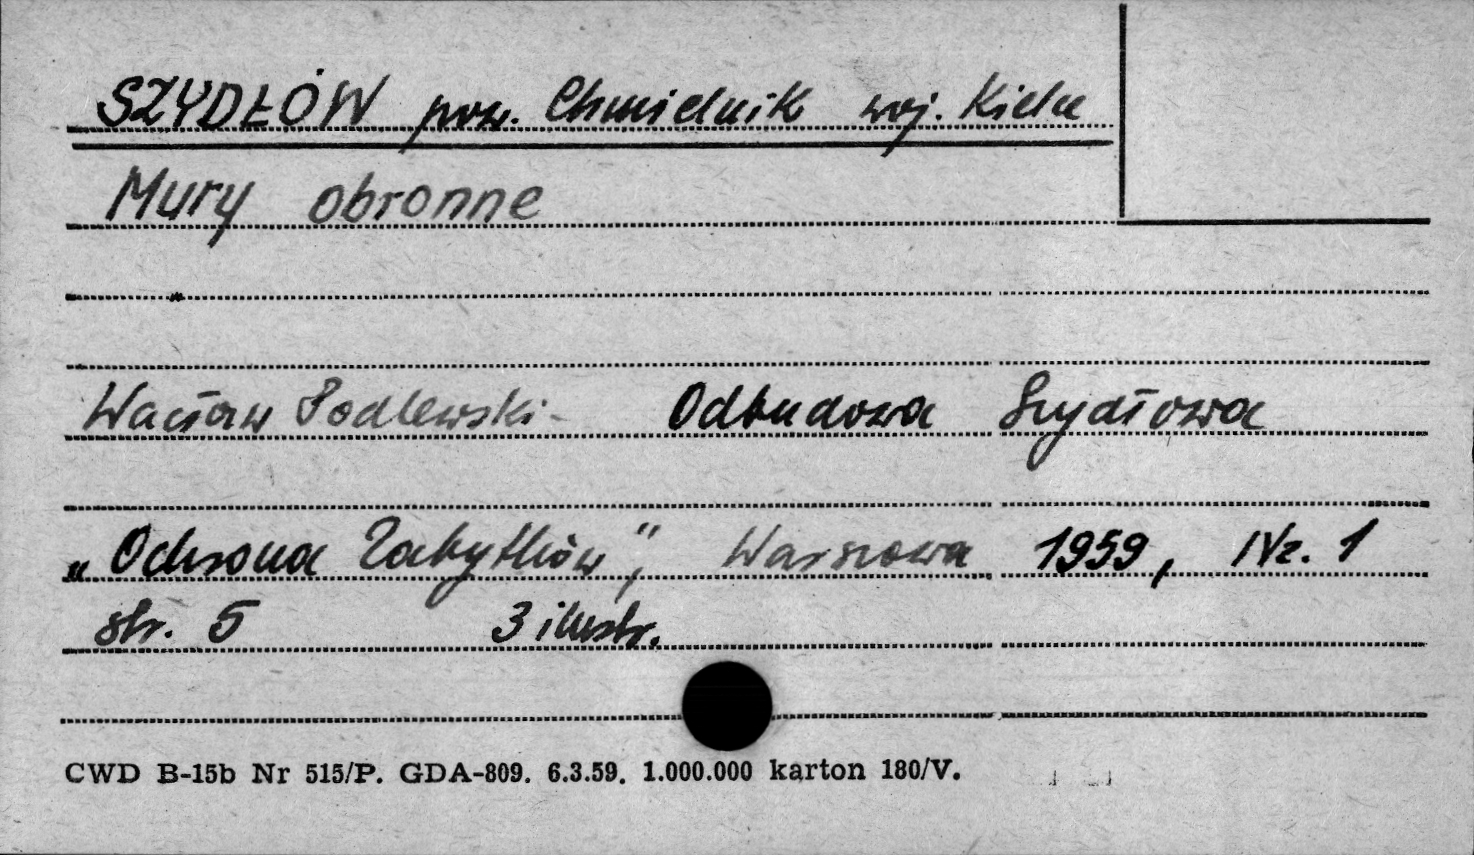 SZYDŁÓW pow. Chmielnik woj. Kielce
Mury obronne
Wacław Podlewski - Odbudowa Szydłowa
„Ochrona Zabytków", Warszawa 1959, nr. 1
str. 5 3 ilustr.
CWD B-15b Nr 515/P. GDA-809. 6.3.59. 1.000.000 karton 180/V.